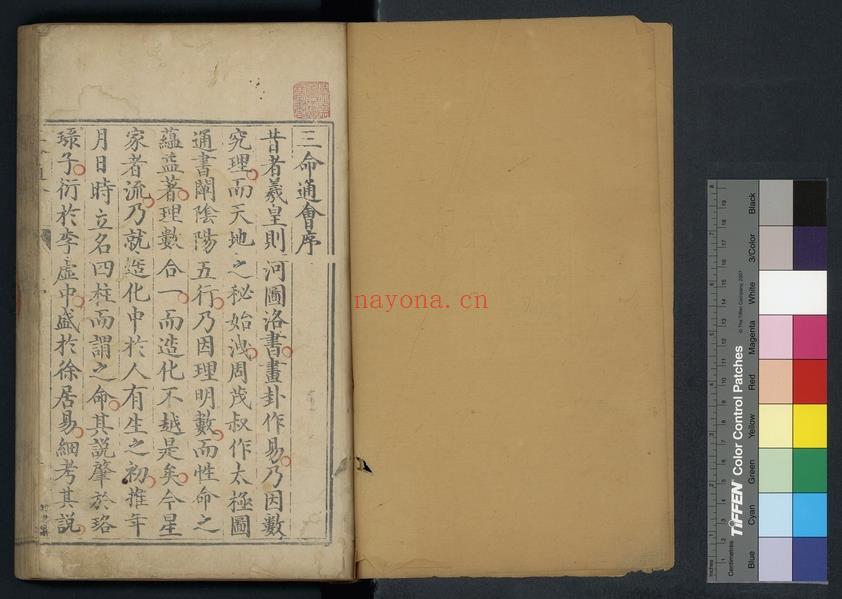 三命通會序
昔者羲皇則河圖洛書畫卦作易乃因數
究理而天地之秘始洩周茂叔作太極圖
通書闡陰陽五行乃因理明數而性命之
蘊益著理數合一而造化不越是矣今星
家者流乃就造化中於人有生之初推年
月日時立名四柱而謂之命其說肇於珞
琭子衍於李虛中盛於徐居易細考其說
nayona.cn
Black
3/Color
White
Magenta
Red
Yellow
Green
Cyan
Blue
© The Tiffen Company, 2007
TIFFEN Color Control Patches
Centimetres
Inches